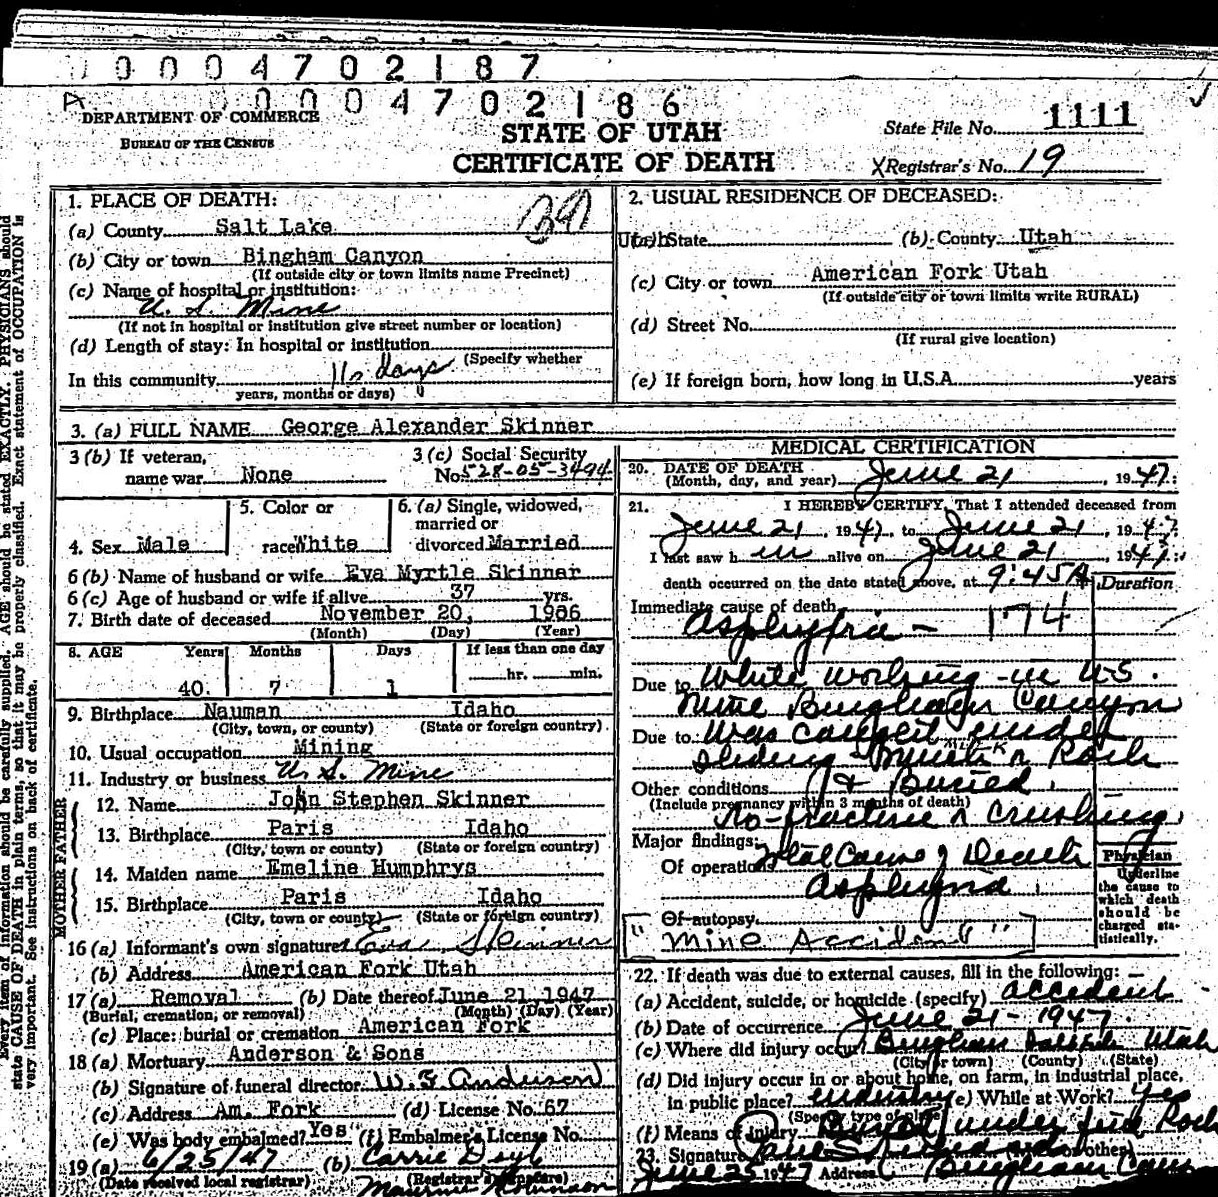 0 0 0 4 7 0 2 1 8 7
A 0 0 0 4 7 0 2 1 8 6
DEPARTMENT OF COMMERCE
BUREAU OF THE CENSUS
STATE OF UTAH
CERTIFICATE OF DEATH
State File No. 1111
X Registrar's No. 19
1. PLACE OF DEATH:
(a) County Salt Lake
(b) City or town Bingham Canyon
(If outside city or town limits name Precinct)
(c) Name of hospital or institution:
U. S. Mine
(If not in hospital or institution give street number or location)
(d) Length of stay: In hospital or institution
(Specify whether
In this community days
years, months or days)
2. USUAL RESIDENCE OF DECEASED:
Utah (a) State (b) County Utah
(c) City or town American Fork Utah
(If outside city or town limits write RURAL)
(d) Street No.
(If rural give location)
(e) If foreign born, how long in U.S.A. years
3. (a) FULL NAME George Alexander Skinner
3 (b) If veteran,
name war None
3 (c) Social Security
No. 528-05-3494
4. Sex Male
5. Color or
race White
6. (a) Single, widowed,
married or
divorced Married
6 (b) Name of husband or wife Eva Myrtle Skinner
6 (c) Age of husband or wife if alive 37 yrs.
7. Birth date of deceased November 20, 1906
(Month) (Day) (Year)
8. AGE Years Months Days If less than one day
hr. min.
40 7 1
9. Birthplace Nauman Idaho
(City, town, or county) (State or foreign country)
10. Usual occupation Mining
11. Industry or business U. S. Mine
FATHER
12. Name John Stephen Skinner
13. Birthplace Paris Idaho
(City, town or county) (State or foreign country)
MOTHER
14. Maiden name Emeline Humphrys
15. Birthplace Paris Idaho
(City, town or county) (State or foreign country)
16 (a) Informant's own signature Eva Skinner
(b) Address American Fork Utah
17 (a) Removal (b) Date thereof June 21, 1947
(Burial, cremation, or removal) (Month) (Day) (Year)
(c) Place: burial or cremation American Fork
18 (a) Mortuary Anderson & Sons
(b) Signature of funeral director W. F. Anderson
(c) Address Am. Fork (d) License No. 67
(e) Was body embalmed? Yes (f) Embalmer's License No.
19 (a) 6/25/47 (b) Carrie
(Date received local registrar) (Registrar's signature)
MEDICAL CERTIFICATION
20. DATE OF DEATH
(Month, day, and year) June 21, 1947
21. I HEREBY CERTIFY, That I attended deceased from
June 21, 1947, to June 21, 1947
I last saw him alive on June 21, 1947
death occurred on the date stated above, at 9:45A
Duration
Immediate cause of death
Asphyxia - 174
Due to While working in U.S.
Mine Bingham Canyon
Due to Was caught under
sliding Muck & Rock
MUCK
Other conditions & Buried.
(Include pregnancy within 3 months of death)
No fracture or crushing.
Major findings:
Of operations Cause of Death
Asphyxia
Of autopsy
["Mine Accident"]
Physician
Underline
the cause to
which death
should be
charged sta-
tistically.
22. If death was due to external causes, fill in the following:
(a) Accident, suicide, or homicide (specify) accident
(b) Date of occurrence June 21 - 1947
(c) Where did injury occur? Bingham Utah
(City or town) (County) (State)
(d) Did injury occur in or about home, on farm, in industrial place,
in public place? industry (e) While at Work? Yes
(Specify type of place)
(f) Means of injury Buried under Rock
23. Signature
June 25 1947 Address Bingham
Every item of information should be carefully supplied. AGE should be stated EXACTLY. PHYSICIANS should
state CAUSE OF DEATH in plain terms, so that it may be properly classified. Exact statement of OCCUPATION is
very important. See instructions on back of certificate.